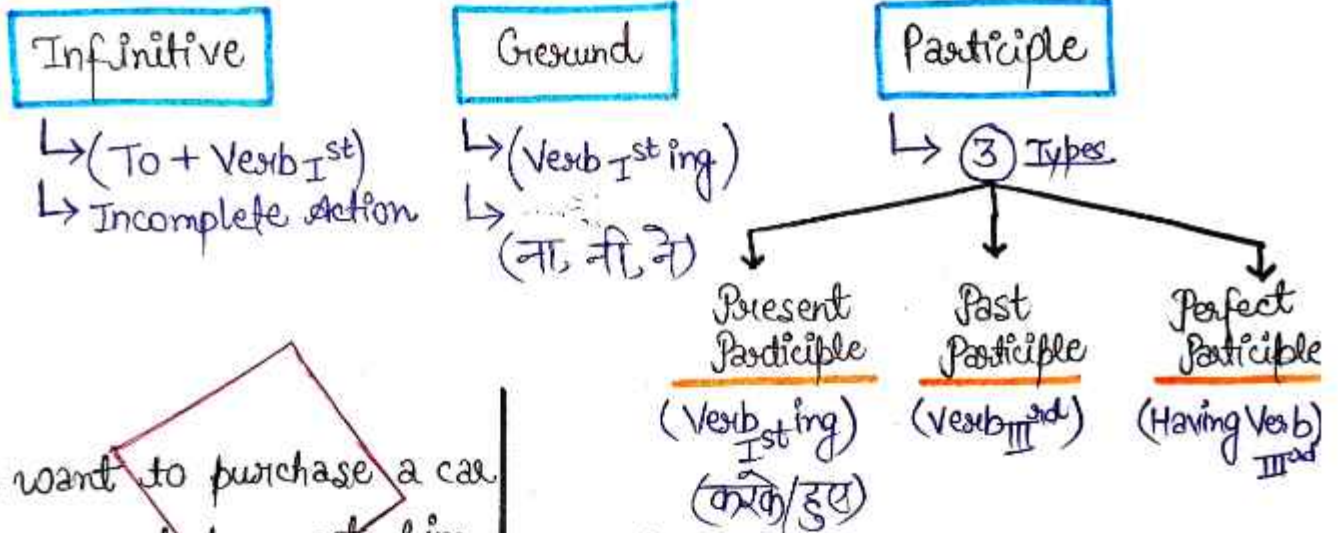 Infinitive
Gerund
Participle
↳ (To + Verb Ist)
↳ Incomplete Action
↳ (Verb Ist ing)
↳
(ना, नी, ने)
↳ ③ Types
Present
Participle
(Verb Ist ing)
(करके/हुए)
Past
Participle
(Verb IIIrd)
Perfect
Participle
(Having Verb
IIIrd)
want to purchase a car